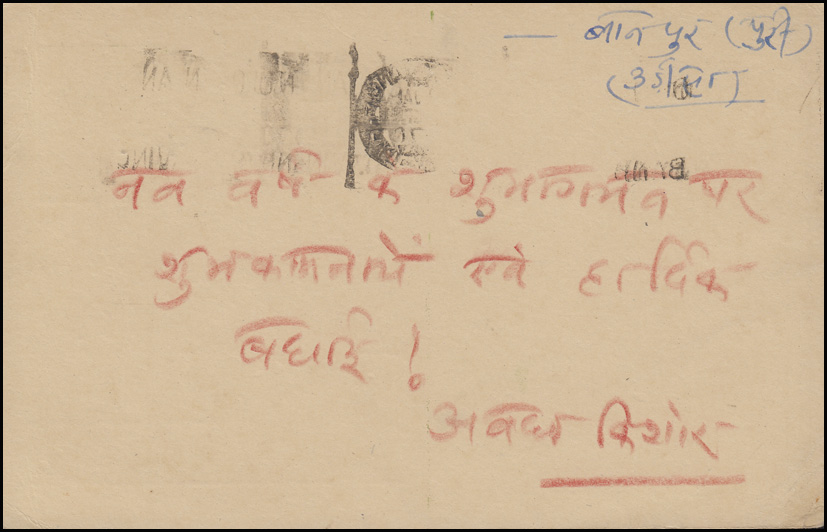 — बानपुर (पुरी)
(उड़ीसा)
नव वर्ष के शुभागमन पर
शुभकामनायें एवं हार्दिक
बधाई !
अवध किशोर